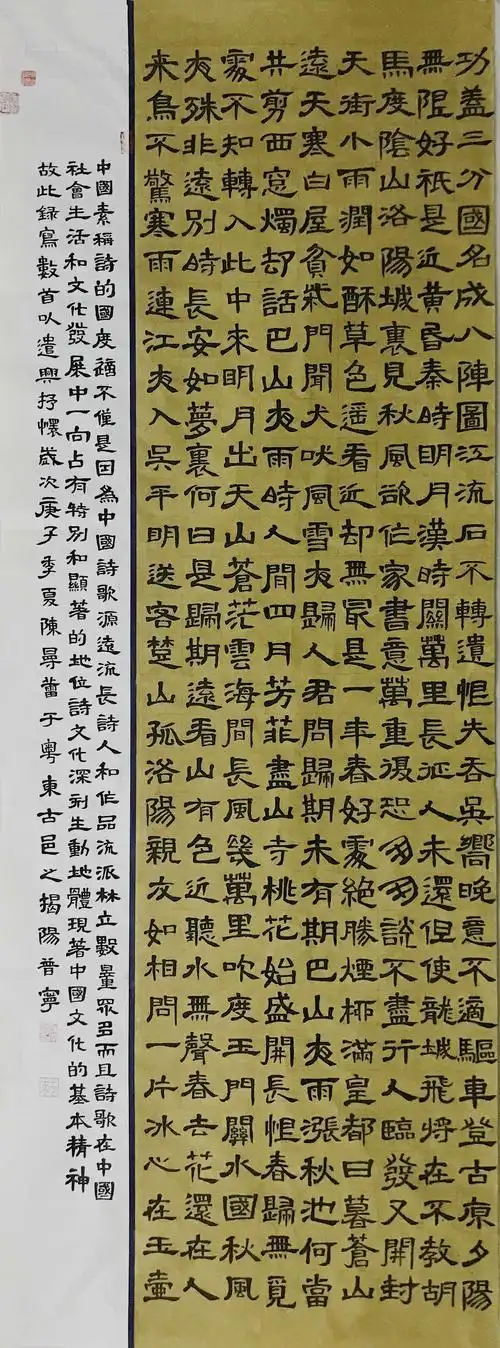 功蓋三分國名成八陣圖江流石不轉遺恨失吞吳嚮晚意不適驅車登古原夕陽
無限好祇是近黃昏秦時明月漢時關萬里長征人未還但使龍城飛將在不教胡
馬度陰山洛陽城裏見秋風欲作家書意萬重復恐匆匆說不盡行人臨發又開封
天街小雨潤如酥草色遥看近却無最是一年春好處絕勝煙柳滿皇都日暮蒼山
遠天寒白屋貧柴門聞犬吠風雪夜歸人君問歸期未有期巴山夜雨漲秋池何當
共剪西窓燭却話巴山夜雨時人間四月芳菲盡山寺桃花始盛開長恨春歸無覓
處不知轉入此中來明月出天山蒼茫雲海間長風幾萬里吹度玉門關水國秋風
夜殊非遠別時長安如夢裏何日是歸期遠看山有色近聽水無聲春去花還在人
来鳥不驚寒雨連江夜入吳平明送客楚山孤洛陽親友如相問一片冰心在玉壺
中國素稱詩的國度不僅是因為中國詩歌源遠流長詩人和作品流派林立數量眾多而且詩歌在中國
社會生活和文化發展中一向占有特別和顯著的地位詩文化深刻生動地體現著中國文化的基本精神
故此錄寫數首以遣興抒懷歲次庚子季夏陳于粵東古邑之揭陽普寧